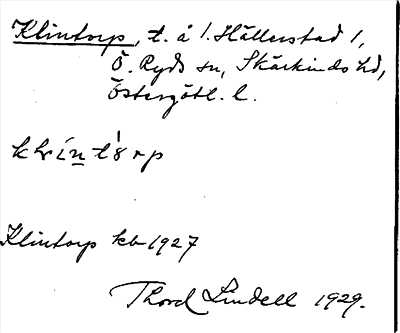 Klintorp, t. å 1. Hällerstad 1,
Ö. Ryds sn, Skärkinds hd,
Östergötl. l.
Klintorp kb 1927
Thord Lindell 1929.